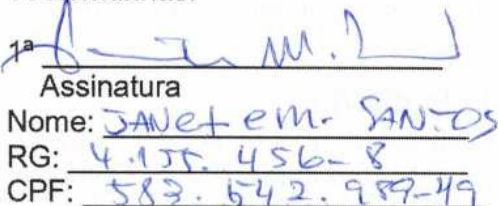 1ª
Assinatura
Nome: JANete M. SANTOS
RG: 4.155.456-8
CPF: 583.542.989-49